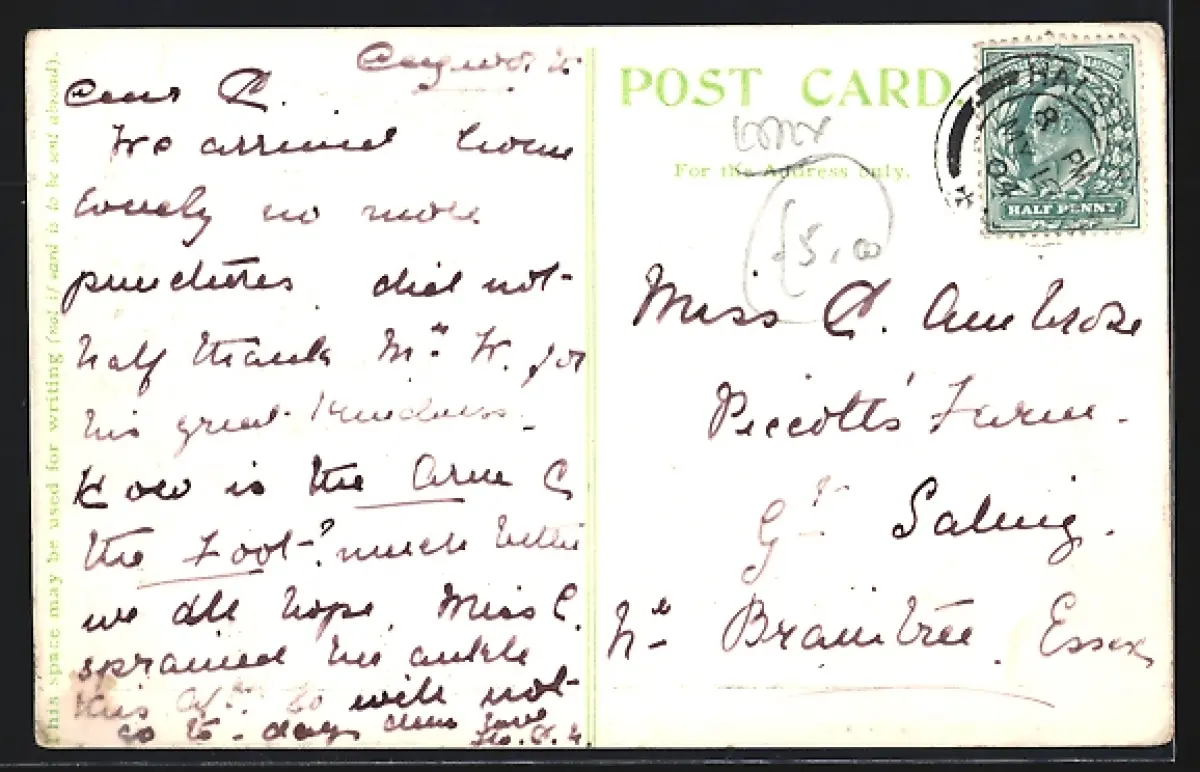 This space may be used for writing (not if card is to be sent abroad).
Dear C.
We arrived home
lovely no more
punctures did not
half thank Mr W. for
his great kindness.
How is the Arm &
the Foot? much better
we all hope. Miss C.
sprained her ankle
this so will not
go to-day's
Love
POST CARD.
For the Address only.
£5.00
HALF PENNY
8 PM
MY 15
04
Miss C. Ambrose
Piccotts' Farm.
Gt Saling.
Nr Braintree. Essex